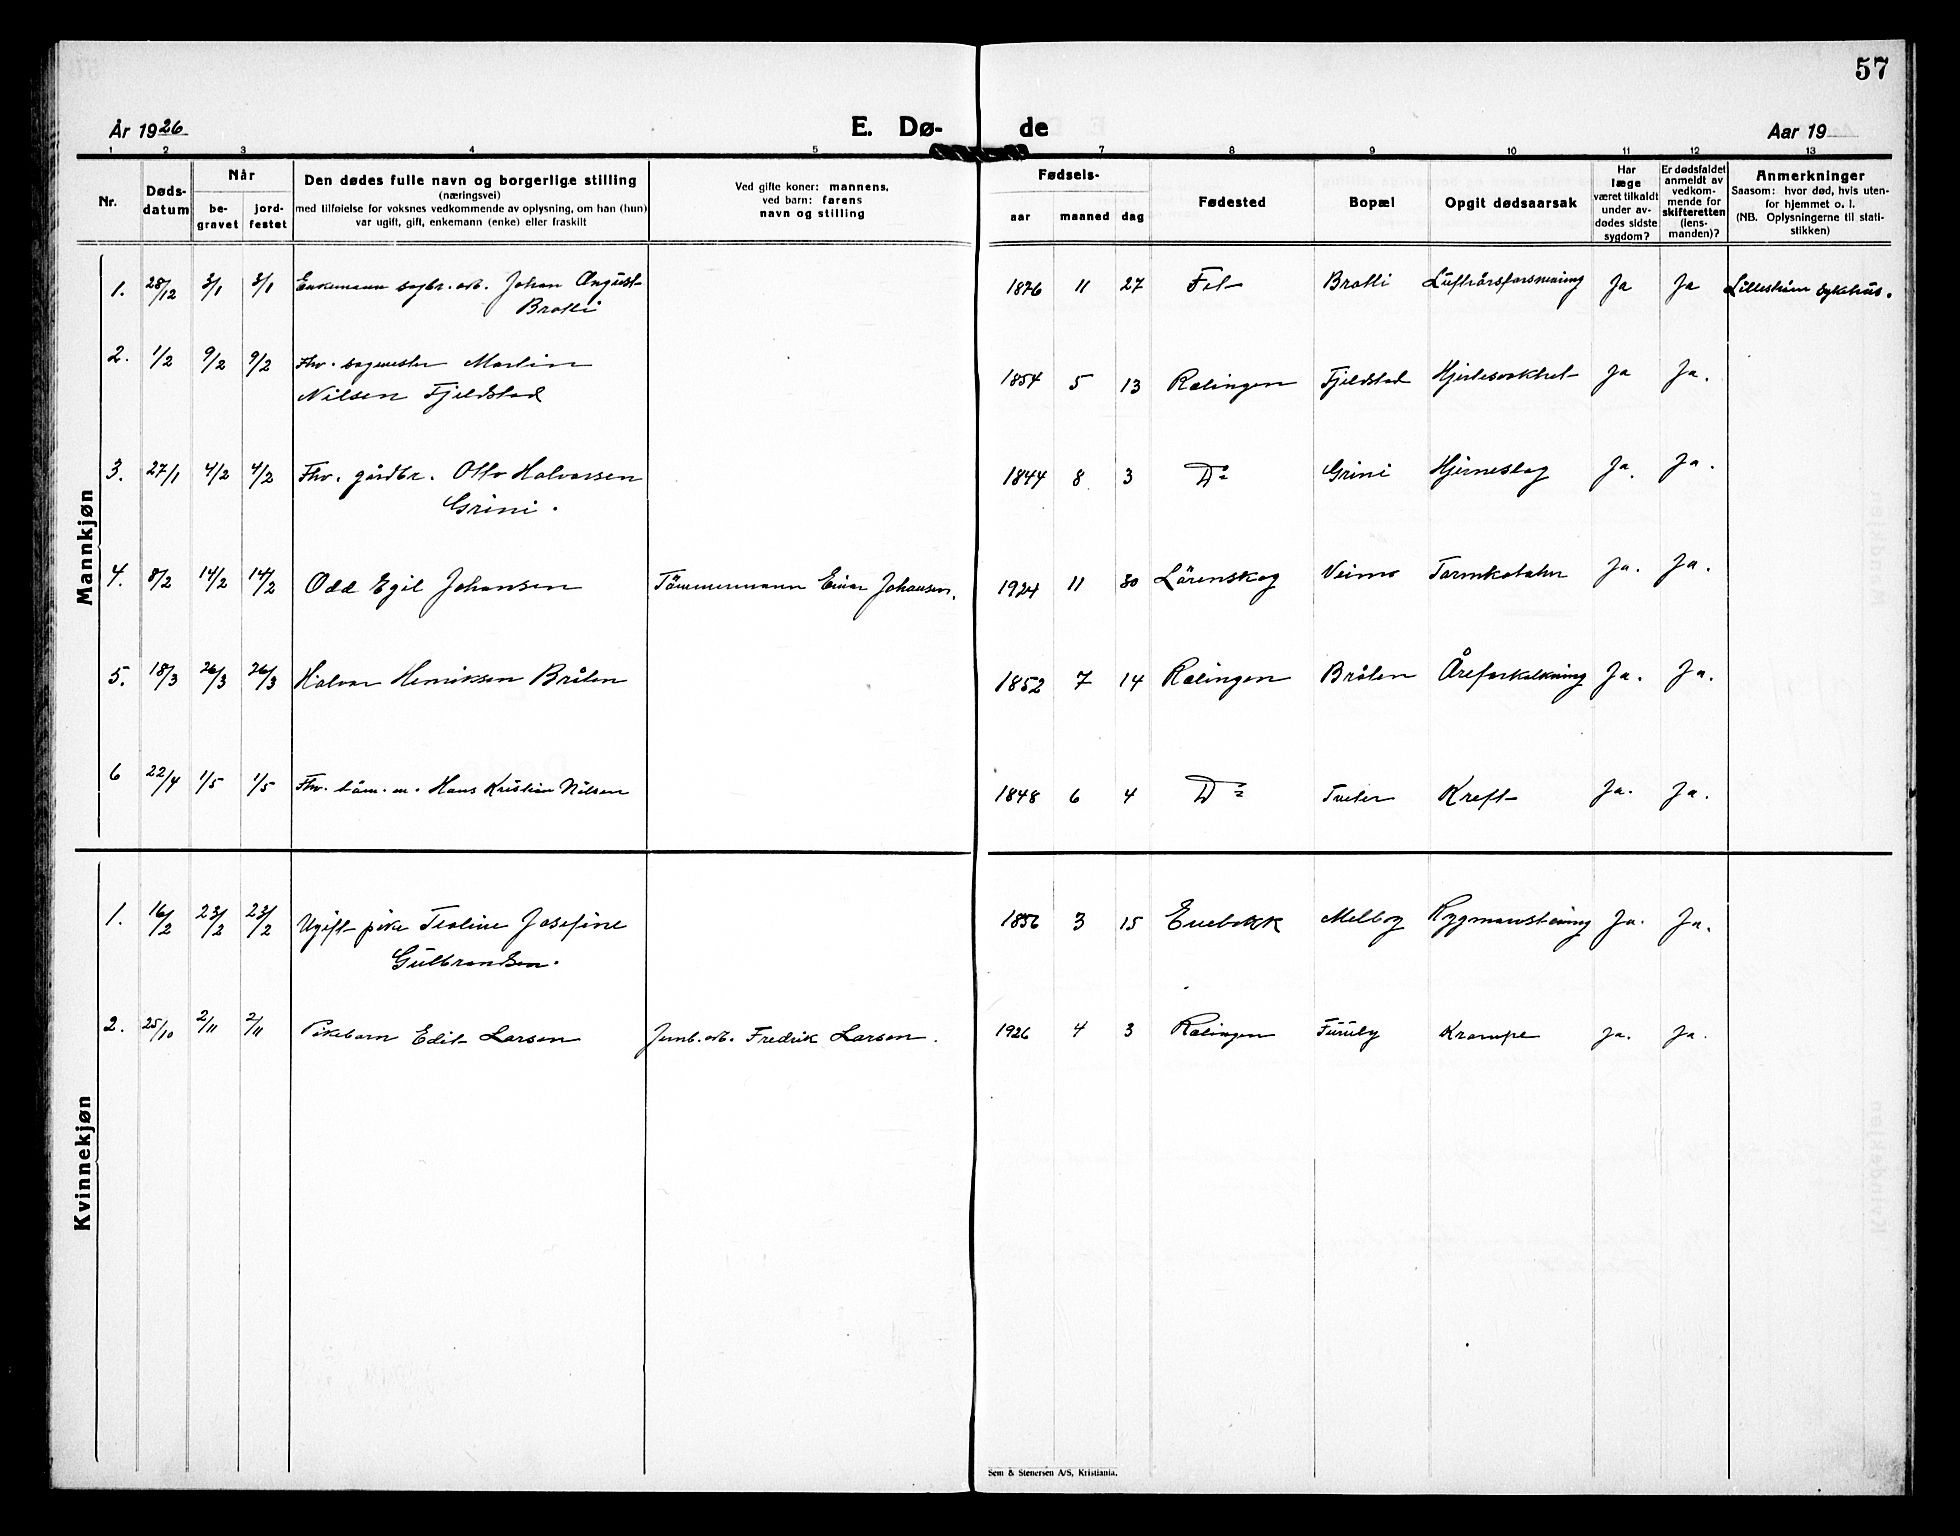 57
År 1926
E. Dø- de
Aar 19
1 2 3 4 5 7 8 9 10 11 12 13
Nr.
Døds-
datum
Når
be-
gravet
jord-
festet
Den dødes fulle navn og borgerlige stilling
(næringsvei)
med tilføielse for voksnes vedkommende av oplysning, om han (hun)
var ugift, gift, enkemann (enke) eller fraskilt
Ved gifte koner: mannens,
ved barn: farens
navn og stilling
Fødsels-
aar maaned dag
Fødested
Bopæl
Opgit dødsaarsak
Har
læge
været tilkaldt
under av-
dødes sidste
sygdom?
Er dødsfaldet
anmeldt av
vedkom-
mende for
skifteretten
(lens-
manden)?
Anmerkninger
Saasom: hvor død, hvis uten-
for hjemmet o. l.
(NB. Oplysningerne til stati-
stikken)
Mannkjøn
1. 28/12 3/1 3/1 Enkemann sagbr. arb. Johan August 1876 11 27 Fet Bratli Luftrørsforsnevring Ja Ja Lillestrøm sykehus.
Bratli
2. 1/2 9/2 9/2 Fhv. sagmester Martin 1854 5 13 Rælingen Fjeldstad Hjertesvakhet Ja Ja.
Nilsen Fjeldstad
3. 27/1 4/2 4/2 Fhv. gårdbr. Otto Halvorsen 1844 8 3 Do Grini Hjerneslag Ja. Ja.
Grini.
4. 8/2 14/2 14/2 Odd Egil Johansen Tömmermann Einar Johansen. 1924 11 30 Lörenskog Veimo Tarmkatahr Ja. Ja.
5. 18/3 26/3 26/3 Halvor Henriksen Bråten 1852 7 14 Rælingen Bråten Åreforkalkning Ja. Ja.
6 22/4 1/5 1/5 Fhv. töm. m. Hans Kristian Nilsen 1848 6 4 Do Tveter Kreft Ja. Ja.
Kvinnekjøn
1. 16/2 23/2 23/2 Ugift pike Teoline Josefine 1856 3 15 Enebakk Melby Rygmarvstæring Ja. Ja.
Gulbrandsen.
2. 25/10 2/11 2/11 Pikebarn Edit Larsen Jernb. arb. Fredrik Larsen. 1926 4 3 Rælingen Furuby Krampe Ja. Ja.
Sem & Stenersen A/S, Kristiania.